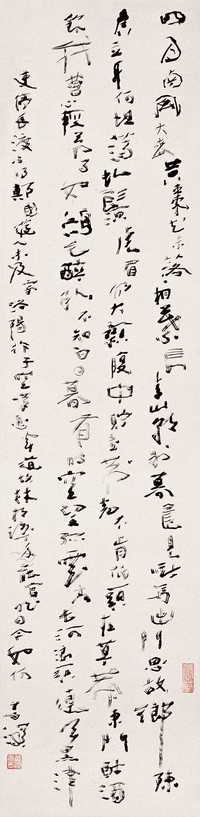 四月南風大麥黄棗花未落桐葉長青山朝别暮還見嘶馬出門思故鄉陳
侯立身何坦蕩虬鬚虎眉仍大顙腹中貯書一萬卷不肯低頭在草莽東門酤酒
飲我曹心輕萬事如鴻毛醉卧不知白日暮有時空望孤雲高長河浪頭連天黑津
吏停舟渡不得鄭國遊人未及家洛陽行子空嘆息聞道故林相識多罷官昨日今如何